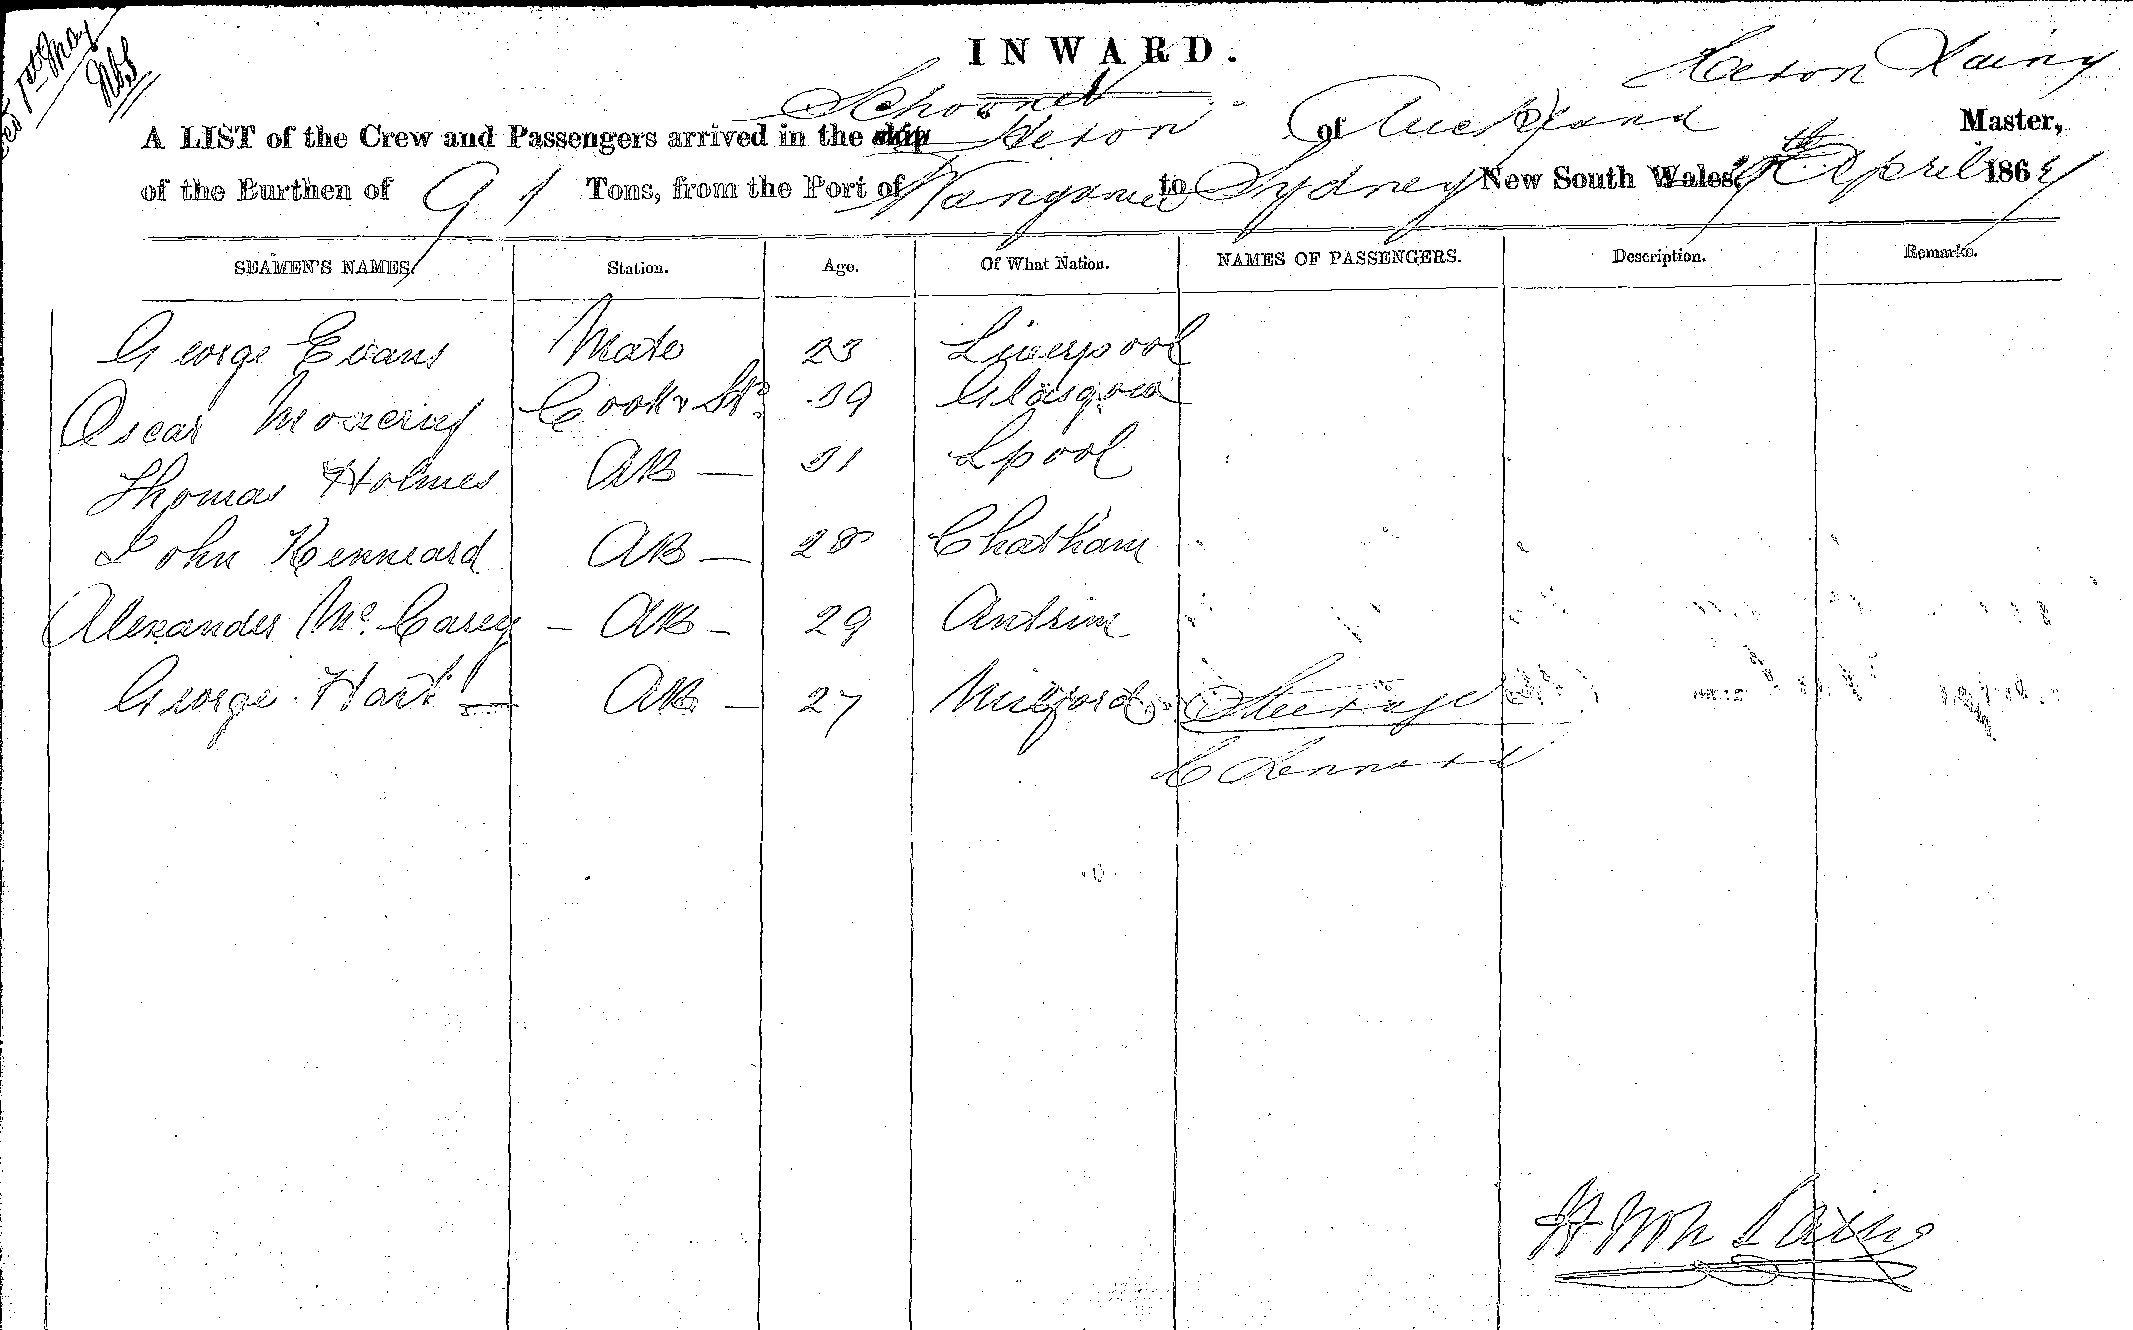 1st May
INWARD.
Schooner
A LIST of the Crew and Passengers arrived in the ship Heron of Auckland Heron Master,
of the Burthen of 91 Tons, from the Port of to Sydney New South Wales, April 186
SEAMEN'S NAMES. Station. Age. Of What Nation. NAMES OF PASSENGERS. Description. Remarks.
George Evans Mate 23 Liverpool
Oscar Cook & Std 39 Glasgow
Thomas Holmes AB — 31 Lpool
John Kenneard AB — 28 Chatham
Alexander Mc. Carey — AB — 29 Antrim
George Hart — AB — 27 Milford Steerage
C Lennard